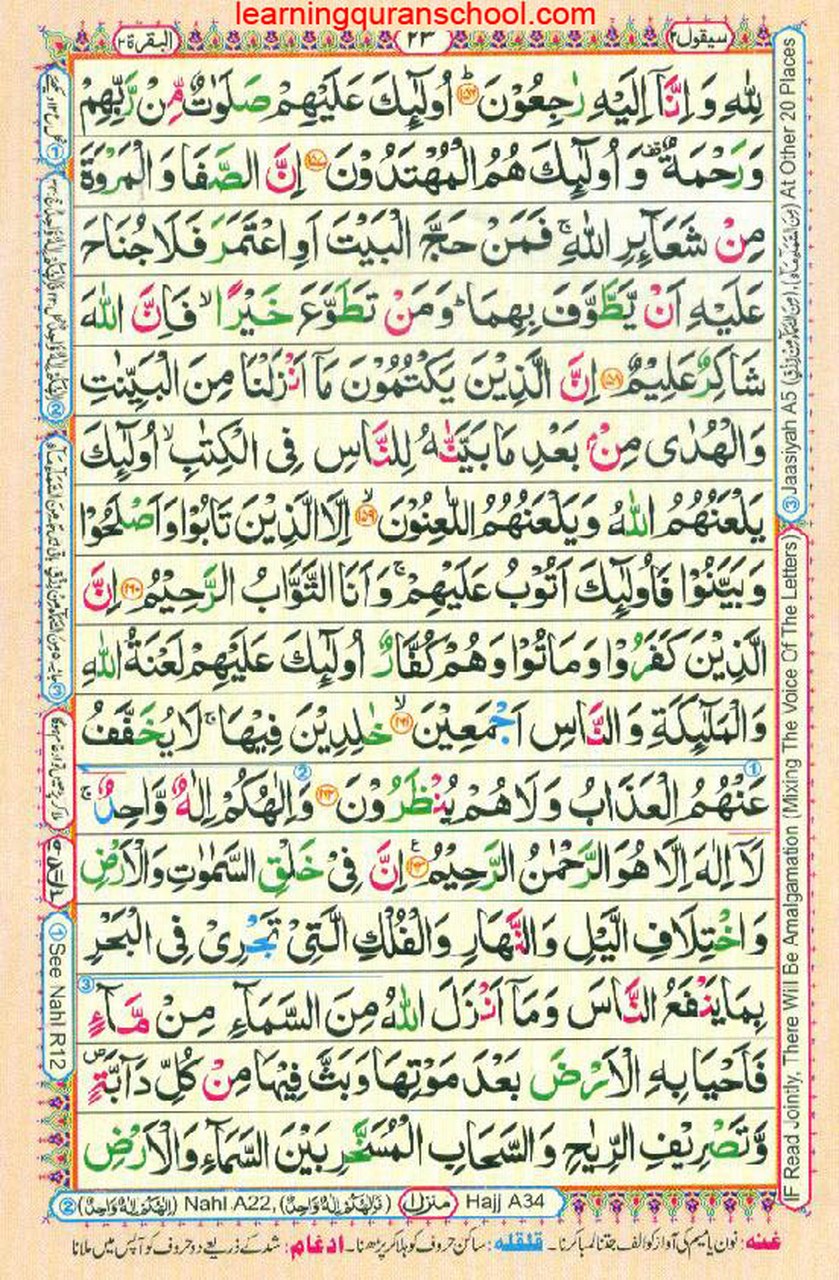 learningquranschool.com
سيقول٢
٢٣
البقرة٢
لِلّٰهِ وَ اِنَّاۤ اِلَيْهِ رٰجِعُوْنَؕ۝۱۵۶ اُولٰٓئِكَ عَلَيْهِمْ صَلَوٰتٌ مِّنْ رَّبِّهِمْ
وَرَحْمَةٌ۫ وَ اُولٰٓئِكَ هُمُ الْمُهْتَدُوْنَ۝۱۵۷ اِنَّ الصَّفَا وَ الْمَرْوَةَ
مِنْ شَعَآئِرِ اللّٰهِۚ فَمَنْ حَجَّ الْبَيْتَ اَوِ اعْتَمَرَ فَلَا جُنَاحَ
عَلَيْهِ اَنْ يَّطَّوَّفَ بِهِمَاؕ وَمَنْ تَطَوَّعَ خَيْرًاۙ فَاِنَّ اللّٰهَ
شَاكِرٌ عَلِيْمٌ۝۱۵۸ اِنَّ الَّذِيْنَ يَكْتُمُوْنَ مَاۤ اَنْزَلْنَا مِنَ الْبَيِّنٰتِ
وَالْهُدٰى مِنْۢ بَعْدِ مَا بَيَّنّٰهُ لِلنَّاسِ فِى الْكِتٰبِۙ اُولٰٓئِكَ
يَلْعَنُهُمُ اللّٰهُ وَيَلْعَنُهُمُ اللّٰعِنُوْنَۙ۝۱۵۹ اِلَّا الَّذِيْنَ تَابُوْا وَاَصْلَحُوْا
وَبَيَّنُوْا فَاُولٰٓئِكَ اَتُوْبُ عَلَيْهِمْۚ وَاَنَا التَّوَّابُ الرَّحِيْمُ۝۱۶۰ اِنَّ
الَّذِيْنَ كَفَرُوْا وَمَاتُوْا وَهُمْ كُفَّارٌ اُولٰٓئِكَ عَلَيْهِمْ لَعْنَةُ اللّٰهِ
وَالْمَلٰٓئِكَةِ وَ النَّاسِ اَجْمَعِيْنَۙ۝۱۶۱ خٰلِدِيْنَ فِيْهَاۚ لَا يُخَفَّفُ
عَنْهُمُ الْعَذَابُ وَلَا هُمْ يُنْظَرُوْنَ۝۱۶۲ وَاِلٰهُكُمْ اِلٰهٌ وَّاحِدٌۚ
لَاۤ اِلٰهَ اِلَّا هُوَ الرَّحْمٰنُ الرَّحِيْمُ۝۱۶۳ اِنَّ فِىْ خَلْقِ السَّمٰوٰتِ وَالْاَرْضِ
وَاخْتِلَافِ الَّيْلِ وَالنَّهَارِ وَالْفُلْكِ الَّتِىْ تَجْرِىْ فِى الْبَحْرِ
بِمَا يَنْفَعُ النَّاسَ وَمَاۤ اَنْزَلَ اللّٰهُ مِنَ السَّمَآءِ مِنْ مَّآءٍ
فَاَحْيَا بِهِ الْاَرْضَ بَعْدَ مَوْتِهَا وَبَثَّ فِيْهَا مِنْ كُلِّ دَآبَّةٍ۪
وَّتَصْرِيْفِ الرِّيٰحِ وَالسَّحَابِ الْمُسَخَّرِ بَيْنَ السَّمَآءِ وَالْاَرْضِ
③ Jaasiyah A5 At Other 20 Places
IF Read Jointly, There Will Be Amalgamation (Mixing The Voice Of The Letters)
① See Nahl R12
② (اِلٰهُكُمْ اِلٰهٌ وَّاحِدٌ) Nahl A22, (فَاِلٰهُكُمْ اِلٰهٌ وَّاحِدٌ) منزل۱ Hajj A34
غنه: نون یا میم کی آواز کو الف جتنا لمبا کرنا۔ قلقله: ساکن حروف کو ہلا کر پڑھنا۔ ادغام: شد کے ذریعے دو حروف کو آپس میں ملانا